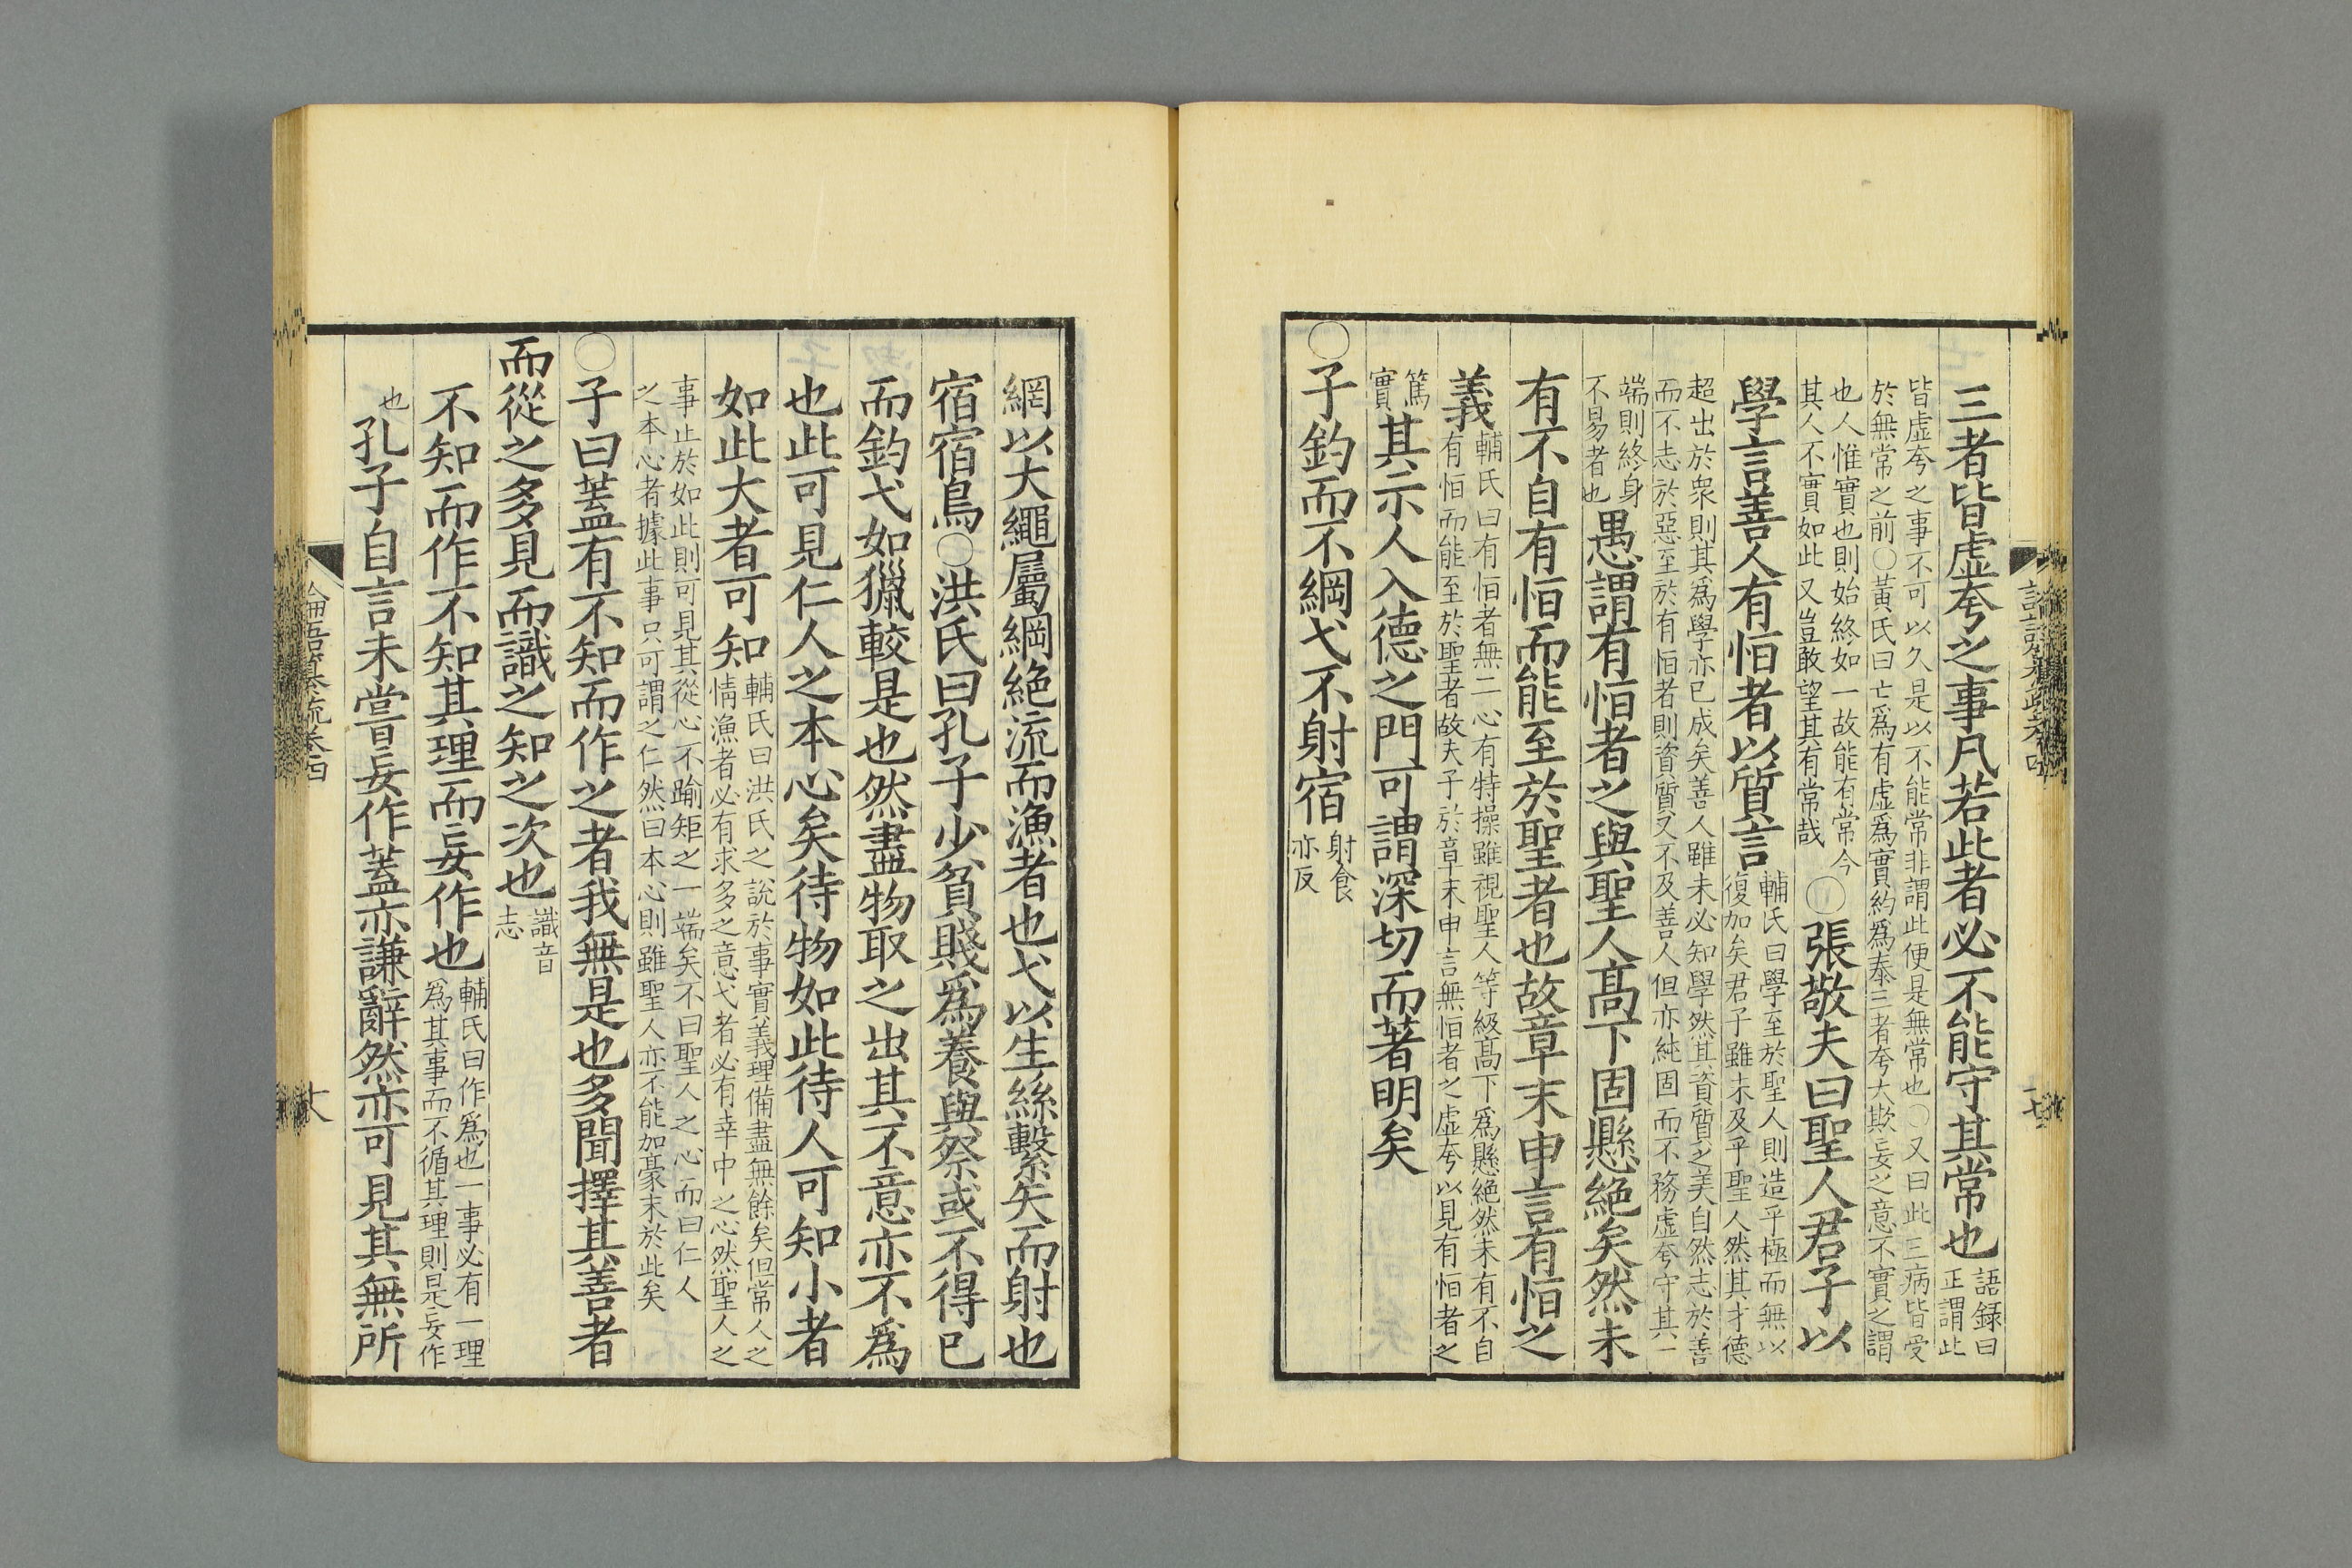 三者皆虛夸之事凡若此者必不能守其常也
語録曰
正謂此
皆虛夸之事不可以久是以不能常非謂此便是無常也○又曰此三病皆受
於無常之前○黃氏曰亡爲有虛爲實約爲泰三者夸大欺妄之意不實之謂
也人惟實也則始終如一故能有常今
其人不實如此又豈敢望其有常哉
○張敬夫曰聖人君子以
學言善人有恒者以質言
輔氏曰學至於聖人則造乎極而無以
復加矣君子雖未及乎聖人然其才德
超出於衆則其爲學亦已成矣善人雖未必知學然其資質之美自然志於善
而不志於惡至於有恒者則資質又不及善人但亦純固而不務虛夸守其一
端則終身
不易者也
愚謂有恒者之與聖人高下固懸絶矣然未
有不自有恒而能至於聖者也故章末申言有恒之
義
輔氏曰有恒者無二心有特操雖視聖人等級高下爲懸絶然未有不自
有恒而能至於聖者故夫子於章末申言無恒者之虛夸以見有恒者之
篤
實
其示人入德之門可謂深切而著明矣
○子釣而不綱弋不射宿
射食
亦反
網以大繩屬綱絶流而漁者也弋以生絲繫矢而射也
宿宿鳥○洪氏曰孔子少貧賤爲養與祭或不得已
而釣弋如獵較是也然盡物取之出其不意亦不爲
也此可見仁人之本心矣待物如此待人可知小者
如此大者可知
輔氏曰洪氏之說於事實義理備盡無餘矣但常人之
情漁者必有求多之意弋者必有幸中之心然聖人之
事止於如此則可見其從心不踰矩之一端矣不曰聖人之心而曰仁人
之本心者據此事只可謂之仁然曰本心則雖聖人亦不能加毫末於此矣
○子曰蓋有不知而作之者我無是也多聞擇其善者
而從之多見而識之知之次也
識音
志
不知而作不知其理而妄作也
輔氏曰作爲也一事必有一理
爲其事而不循其理則是妄作
也
孔子自言未嘗妄作蓋亦謙辭然亦可見其無所
論語纂疏卷四